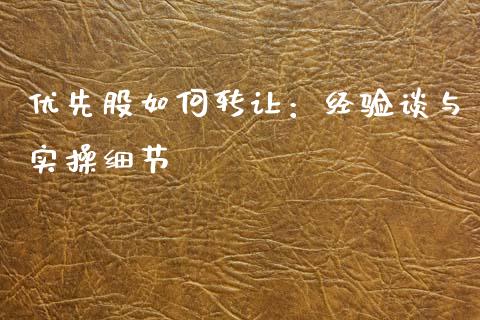 优先股如何转让：经验谈与
实操细节